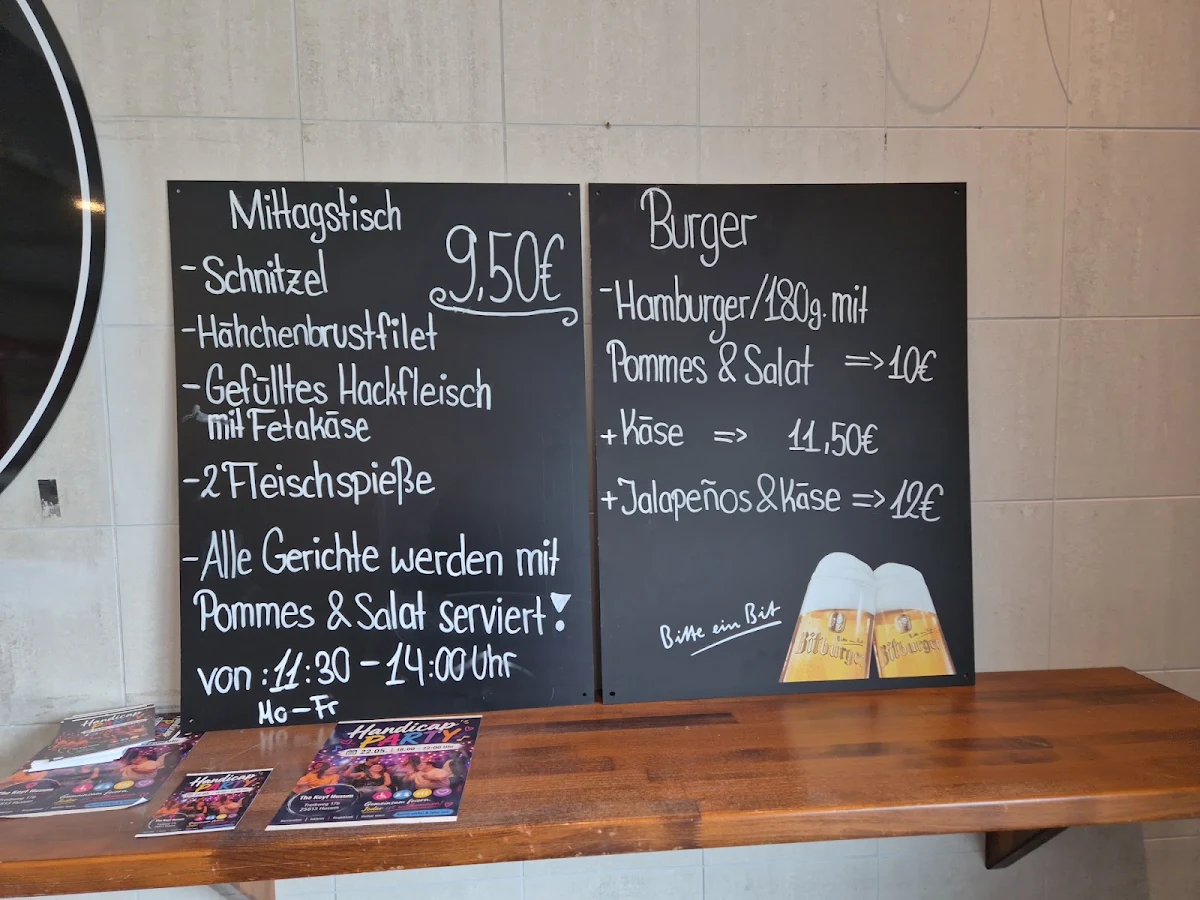 Mittagstisch
9,50€
-Schnitzel
-Hähchenbrustfilet
-Gefülltes Hackfleisch
mit Fetakäse
-2 Fleischspieße
-Alle Gerichte werden mit
Pommes & Salat serviert!
von: 11:30 - 14:00 Uhr
Mo-Fr
Burger
-Hamburger/180g. mit
Pommes & Salat => 10€
+Käse => 11,50€
+Jalapeños & Käse => 12€
Bitte ein Bit
Bitburger
Bitburger
Handicap
PARTY
22.05.
18:00 - 22:00 Uhr
The Keyf Husum
25813 Husum
Gemeinsam feiern.
Handicap
PARTY
Handicap